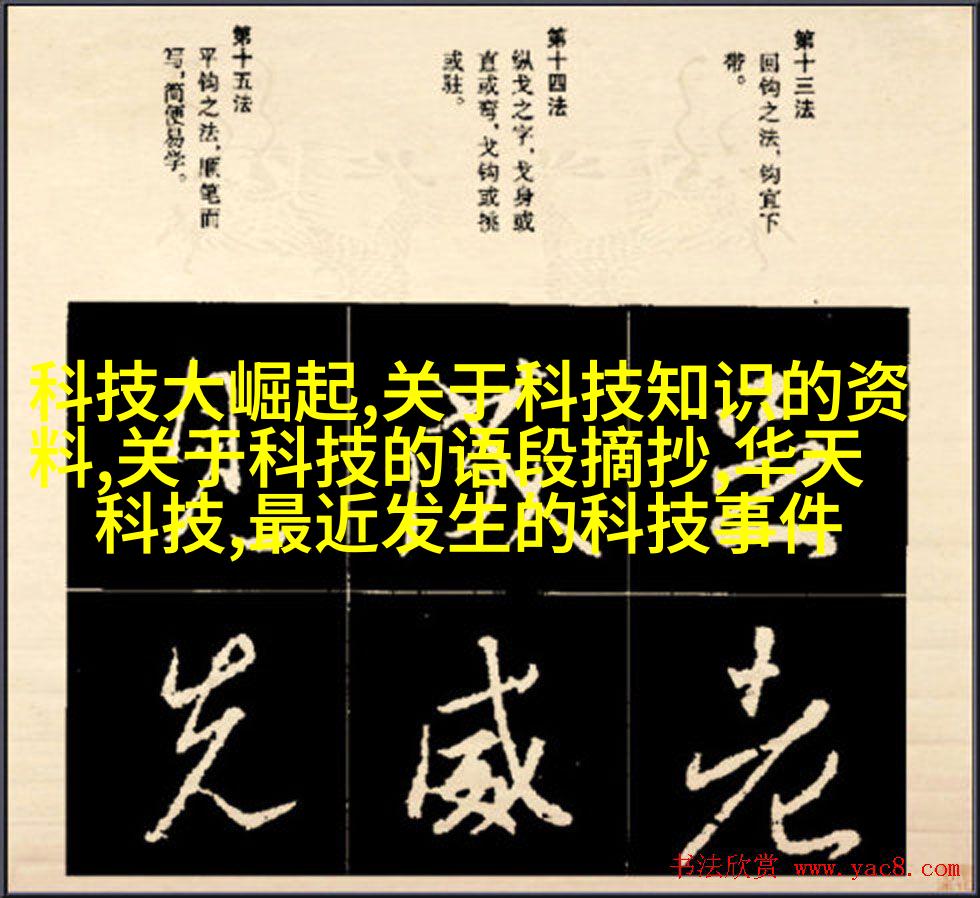 第十三法
回钩之法，钩宜下
带。
第十四法
纵戈之字，戈身或
直或弯，戈钩或挑
或驻。
第十五法
平钩之法，顺笔而
写，简便易学。
科技大崛起,关于科技知识的资
料,关于科技的语段摘抄,华天
科技,最近发生的科技事件
老
威
先
书法欣赏 www.yac8.com